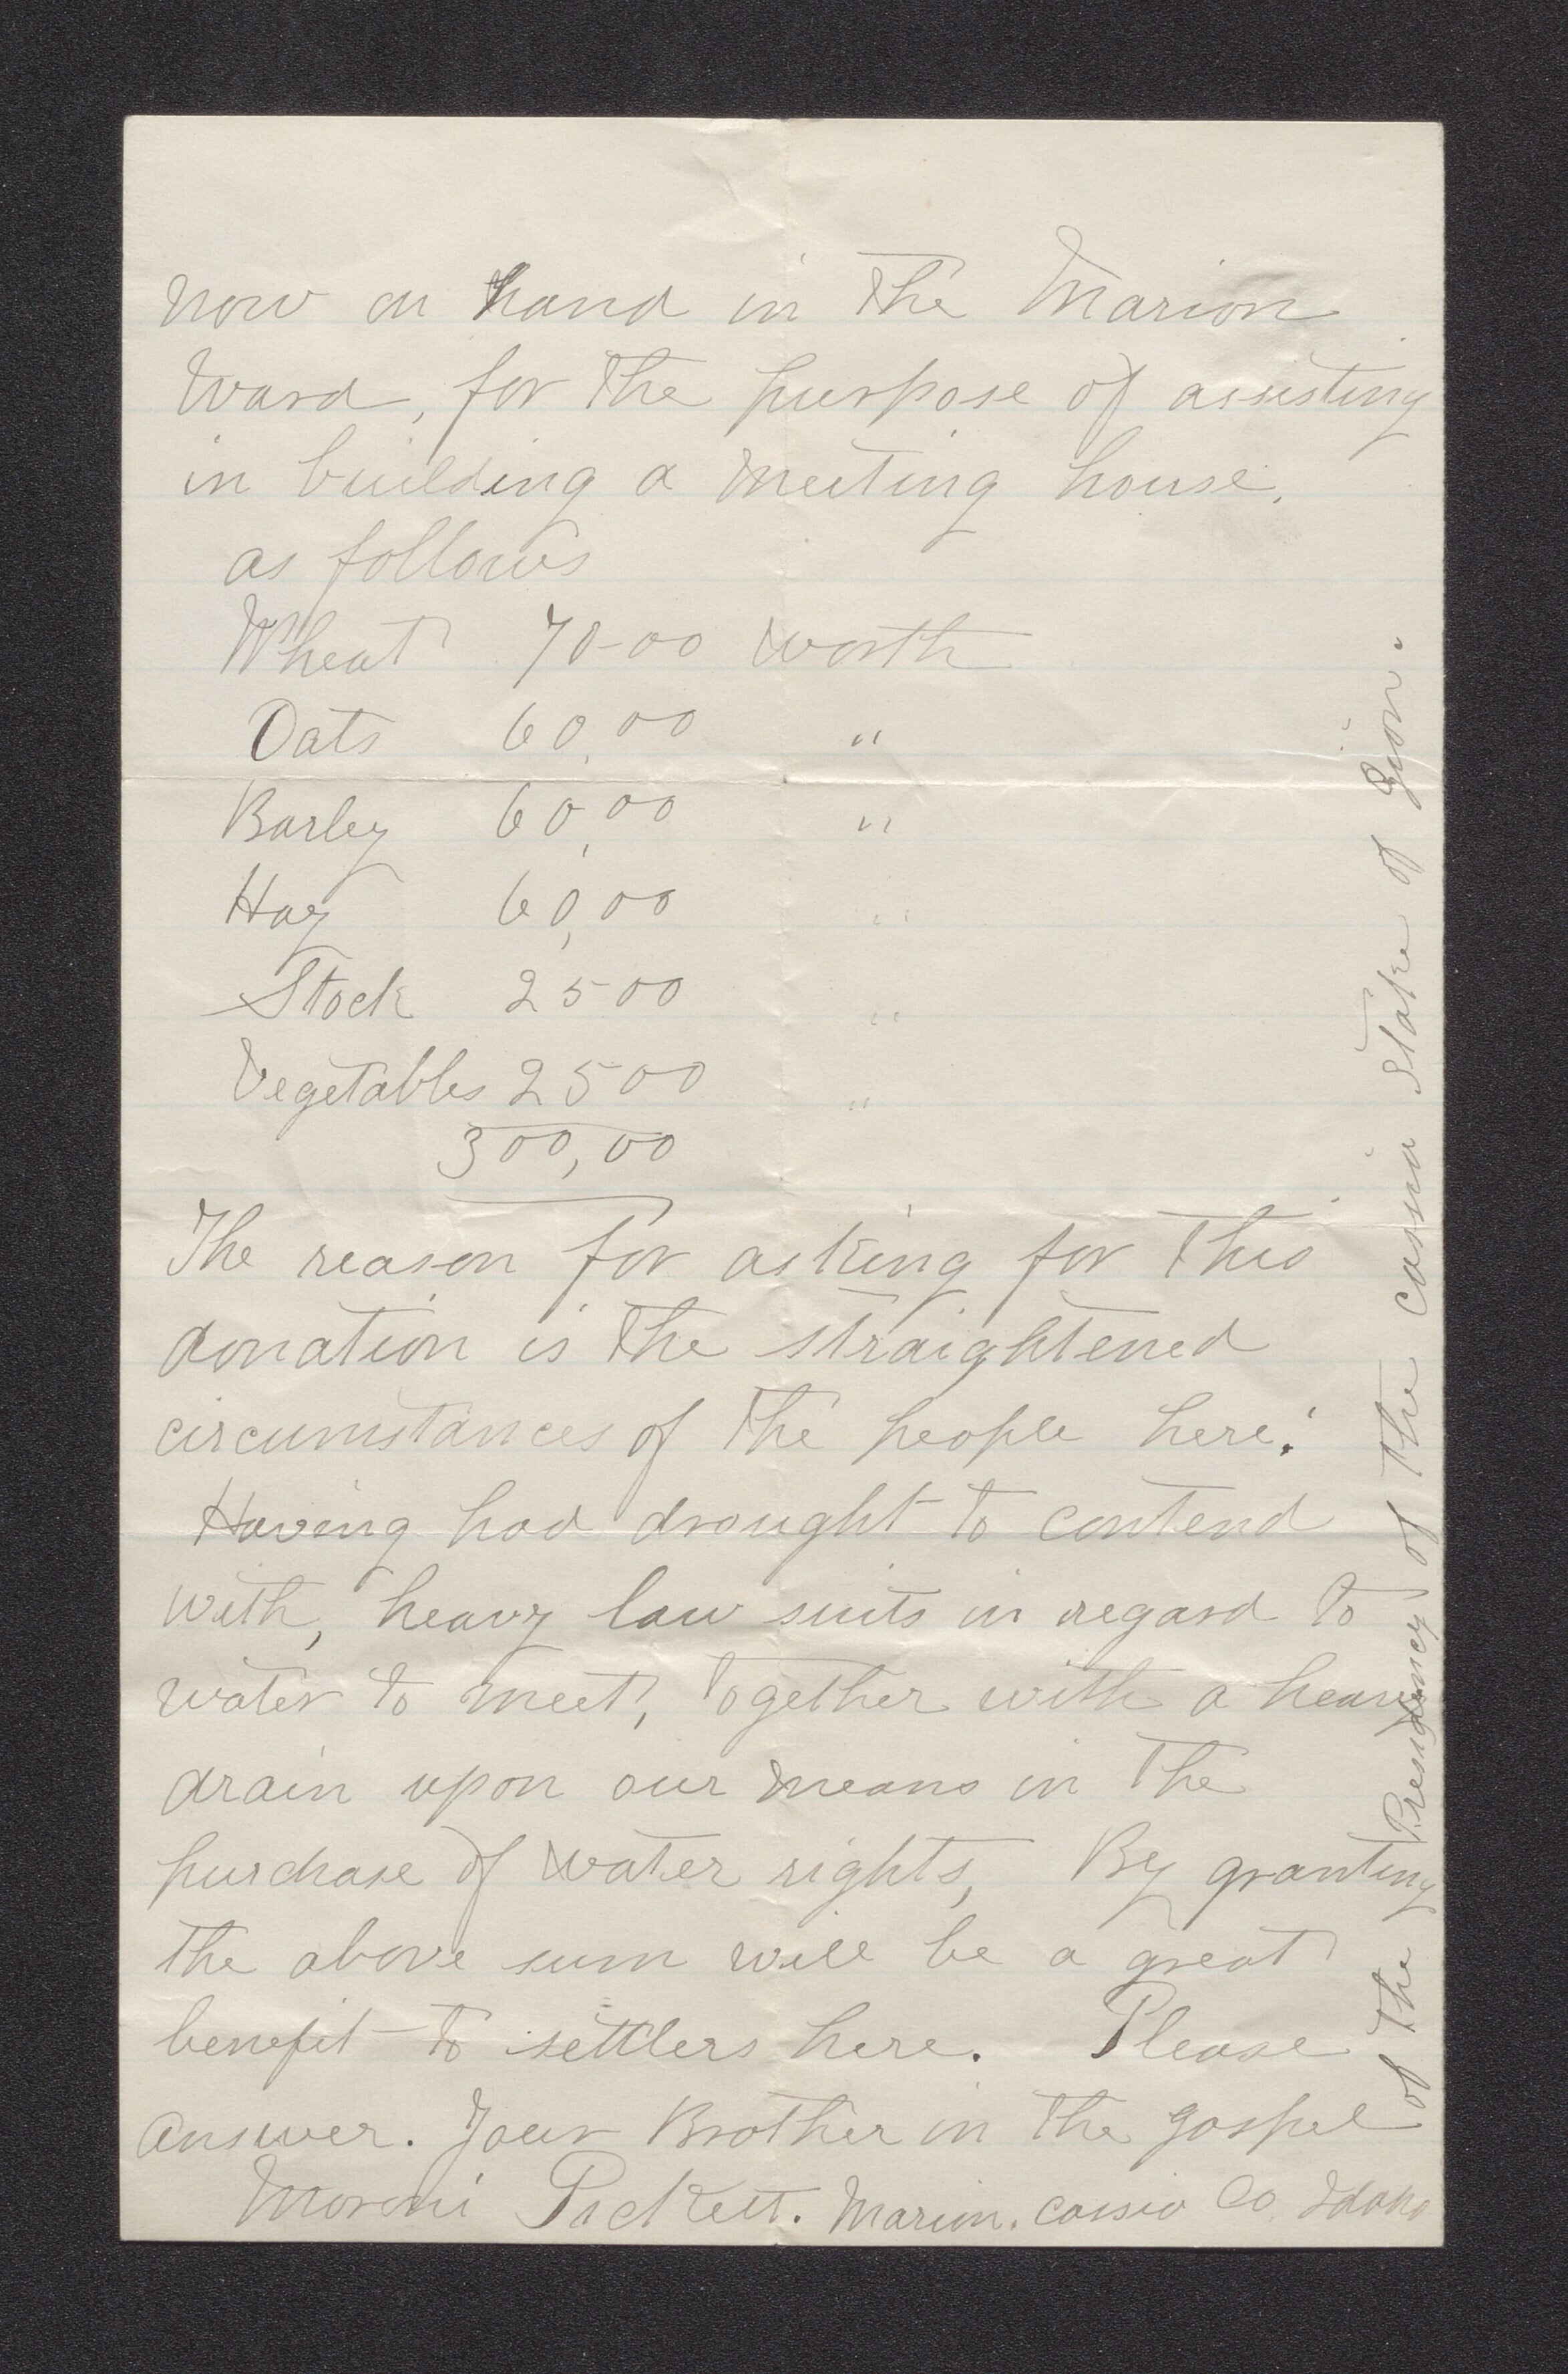 now on hand in the Marion
Ward, for the purpose of assisting
in building a meeting house.
as follows
Wheat 70-00 worth
Oats 60,00 "
Barley 60,00 "
Hay 60,00 "
Stock 25 00 "
Vegetables 25 00 "
300,00
The reason for asking for this
donation is the straightened
circumstances of the people here.
Having had drought to contend
with, heavy law suits in regard to
water to meet, together with a heavy
drain upon our means in the
purchase of water rights, By granting
the above sum will be a great
benefit to settlers here. Please
answer. Your Brother in the gospel
Moroni Pickett. Marion. Cassia Co. Idaho
of the Presidency of the Cassia Stake of Zion.